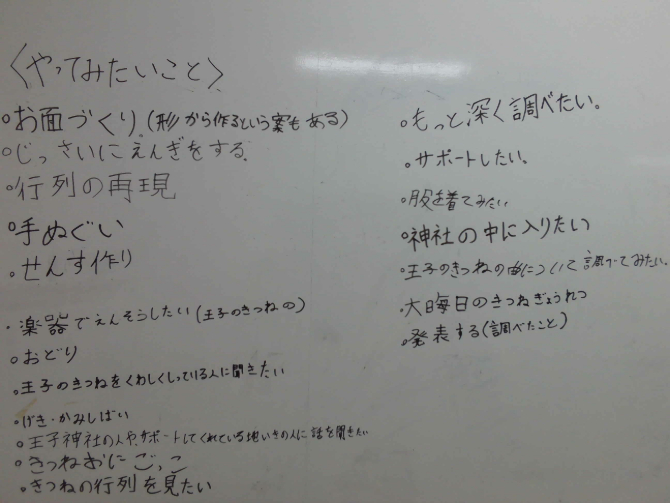 〈やってみたいこと〉
○お面づくり(形から作るという案もある)
○じっさいにえんぎをする
○行列の再現
○手ぬぐい
○せんす作り
・楽器でえんそうしたい(王子のきつねの)
○おどり
○王子のきつねをくわしくしっている人に聞きたい
○げき・かみしばい
○王子神社の人や、サポートしてくれている地いきの人に話を聞きたい
○きつねおにごっこ
○きつねの行列を見たい
○もっと深く調べたい。
○サポートしたい。
○服を着てみたい
○神社の中に入りたい
○王子のきつねの曲について調べてみたい。
○大晦日のきつねぎょうれつ
○発表する(調べたこと)